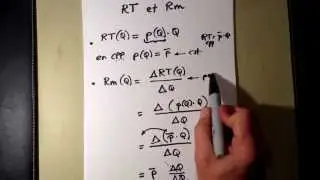 RT et Rm
• RT(Q) = p(Q)·Q
RT = p̄·Q
cpp
en cpp p(Q) = p̄ ← cst
• Rm(Q) = ΔRT(Q) / ΔQ ←
= Δ(p(Q)·Q) / ΔQ
= Δ(p̄·Q) / ΔQ
= p̄ ΔQ / ΔQ